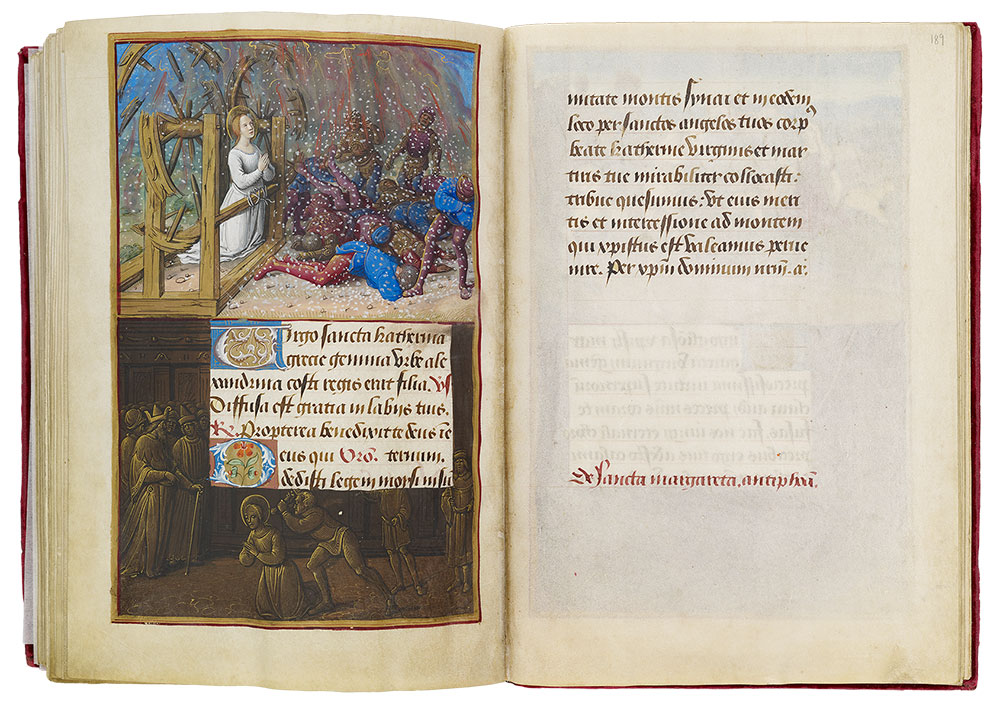 Virgo sancta katherina
grecie gemma urbe ale
xandrina costi regis erat filia. Vs
Diffusa est gratia in labijs tuis.
R. Propterea benedixit te deus in e
Deus qui Oro. ternum.
dedisti legem moysi in su
189
mitate montis synai et in eodem
loco per sanctos angelos tuos corpꝰ
beate katherine virginis et mar
tiris tue mirabiliter collocasti:
tribue quesumus: ut eius meri
tis et intercessione ad montem
qui xpistus est valeamus perue
nire. Per xpm dominum nrm. a.
De sancta margareta. antiphoā.